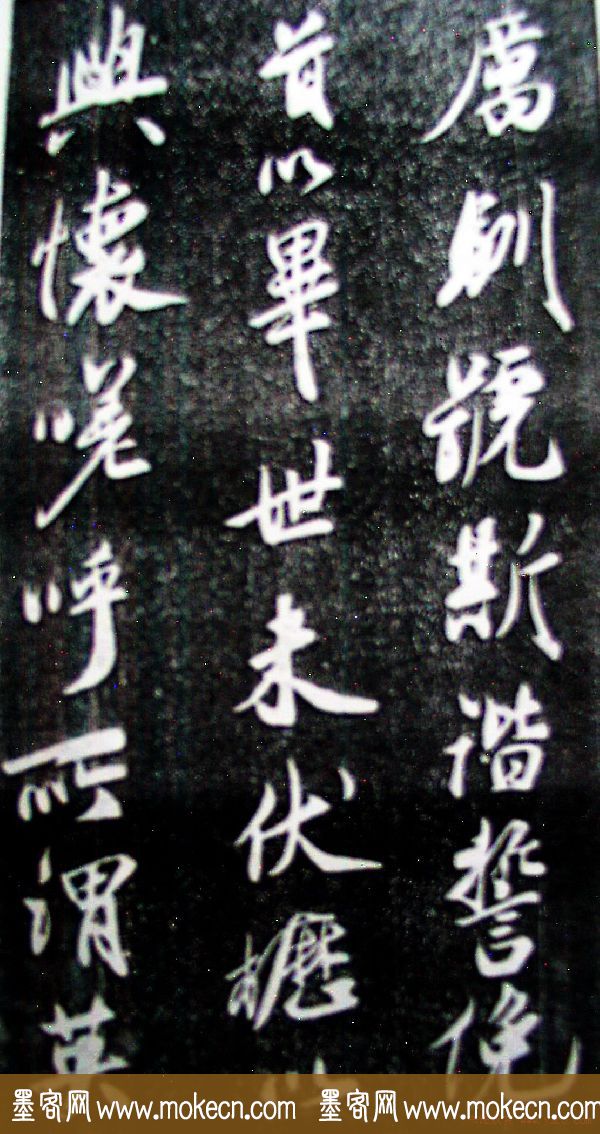 厲則號斯諧誓俛
首以畢世未伏櫪以
興懷嗟呼所謂英
墨客网 www.mokecn.com 墨客网 www.mokecn.com